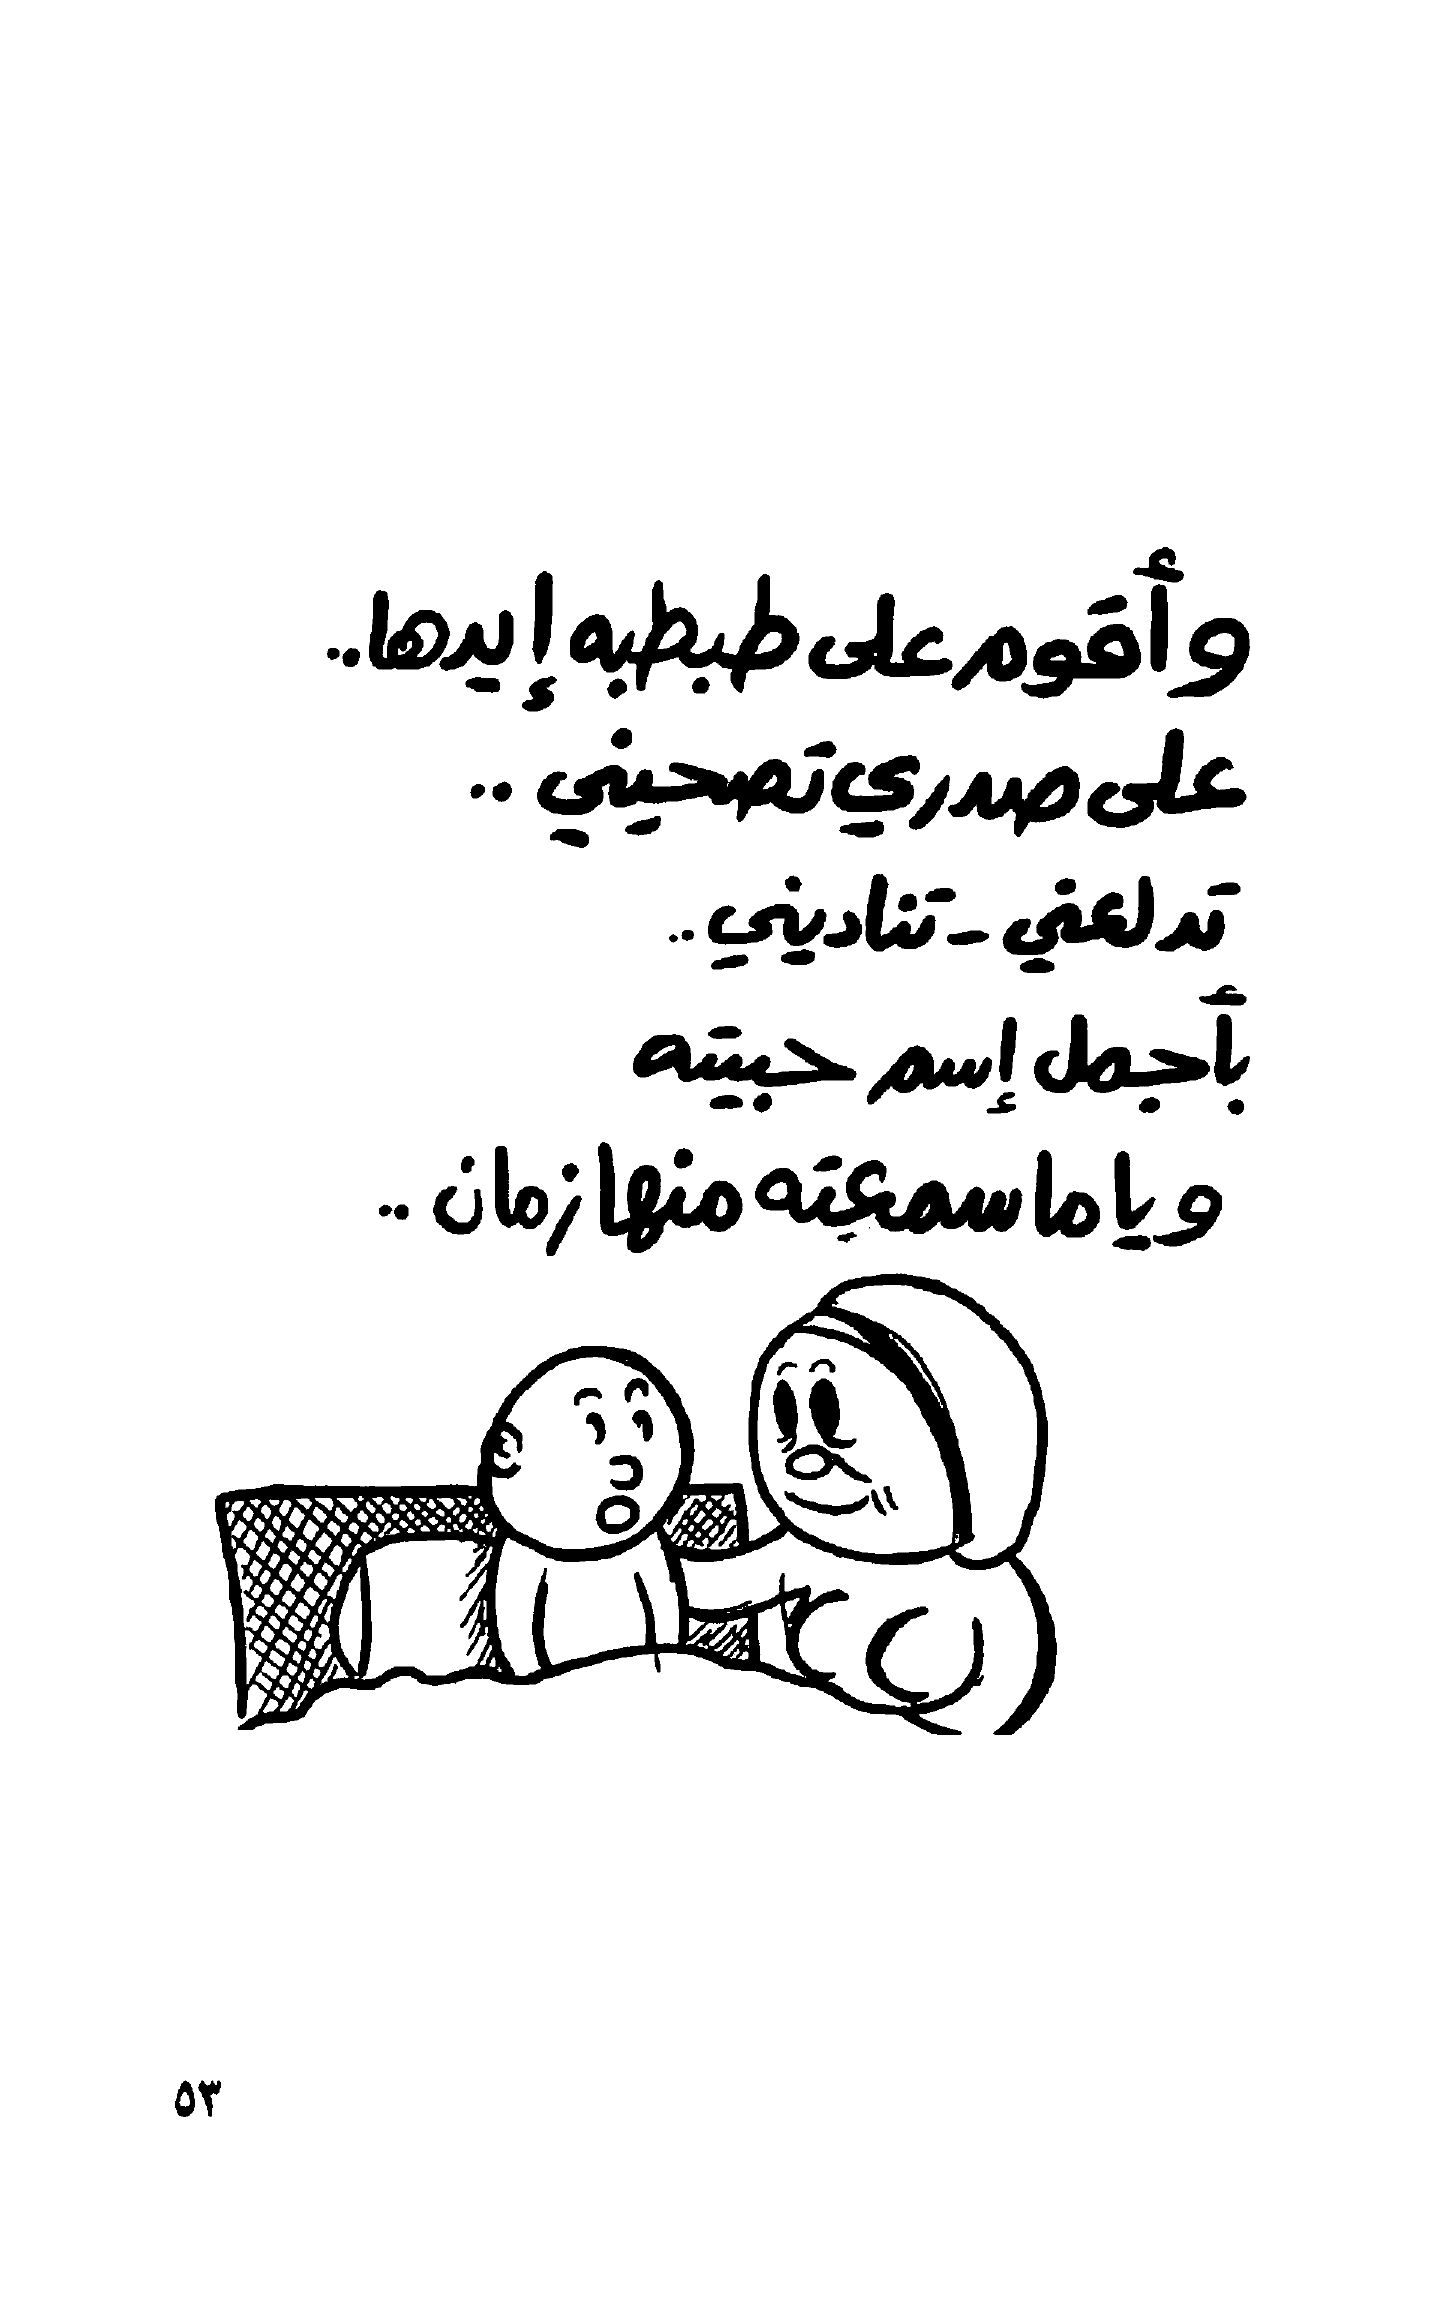 وأقوم على طبطبه إيدها..
على صدري تصحيني ..
تدلعني - تناديني ..
بأجمل إسم حبيته
ويا ما سمعته منها زمان ..
٥٣